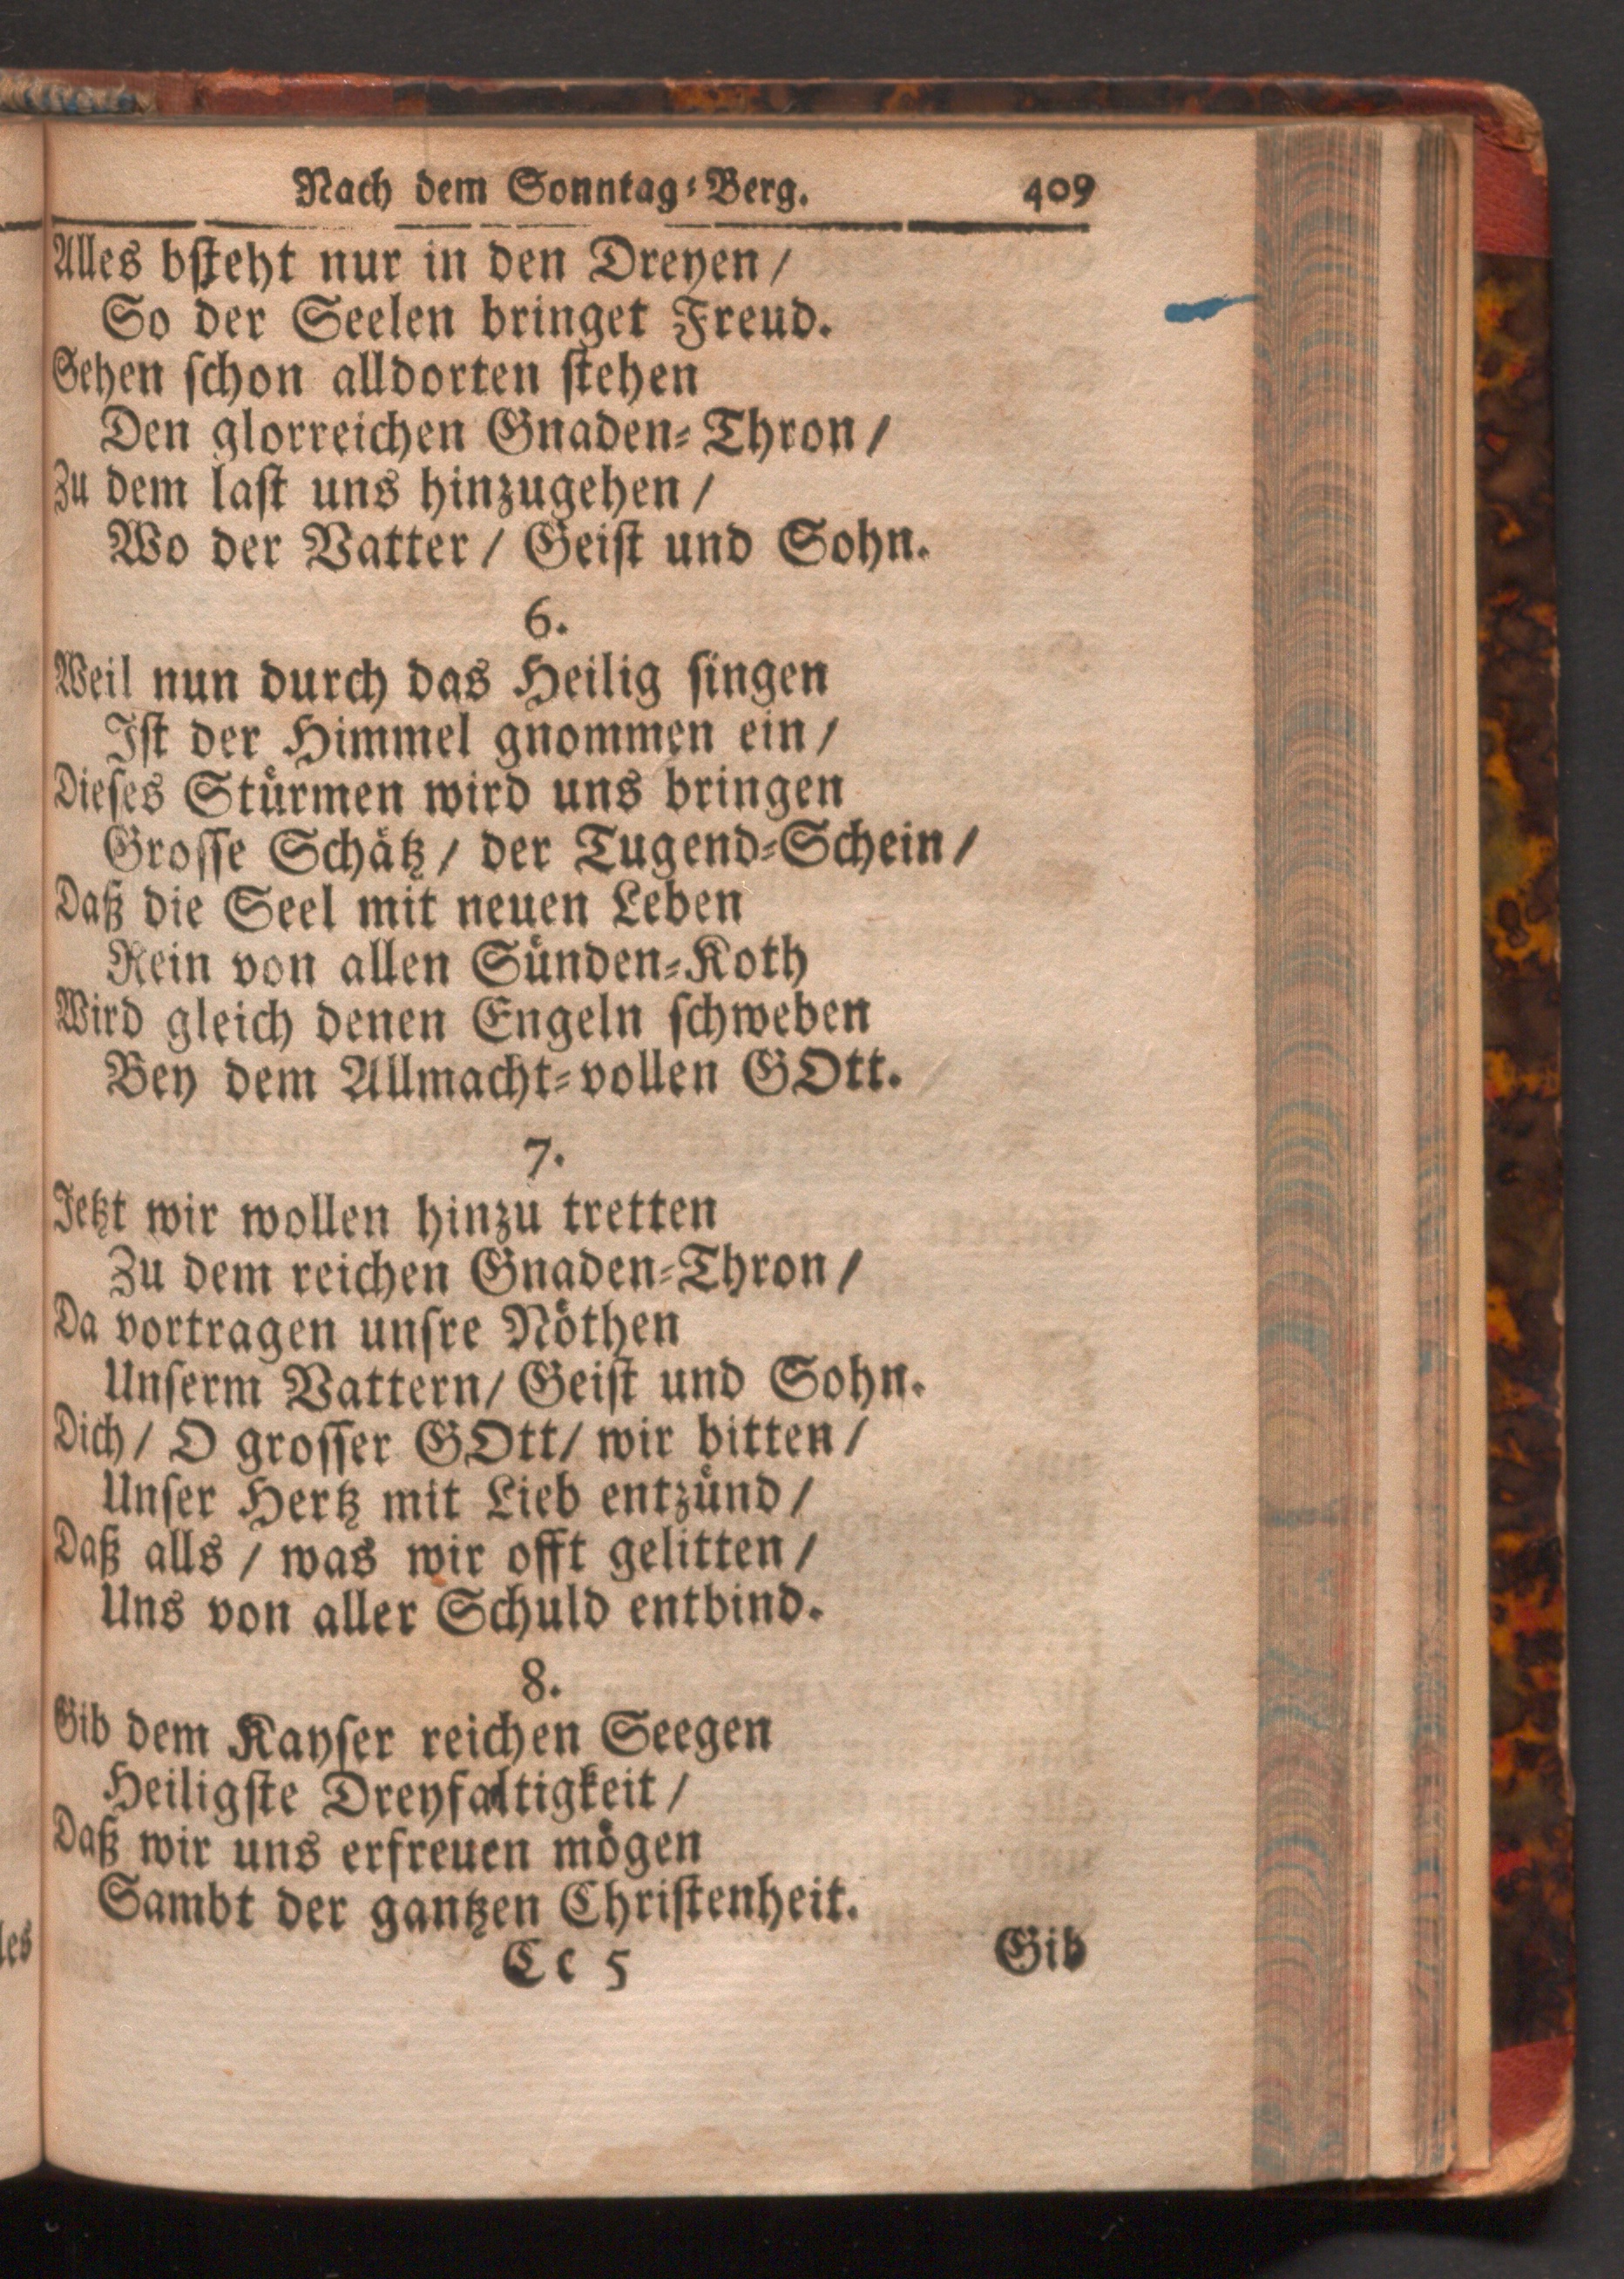 Nach dem Sonntag-Berg. 409
Alles bsteht nur in den Dreyen /
So der Seelen bringet Freud.
Sehen schon alldorten stehen
Den glorreichen Gnaden-Thron /
Zu dem last uns hinzugehen /
Wo der Vatter / Geist und Sohn.
6.
Weil nun durch das Heilig singen
Ist der Himmel gnommen ein /
Dieses Stürmen wird uns bringen
Grosse Schätz / der Tugend-Schein /
Daß die Seel mit neuen Leben
Rein von allen Sünden-Koth
Wird gleich denen Engeln schweben
Bey dem Allmacht-vollen GOtt.
7.
Jetzt wir wollen hinzu tretten
Zu dem reichen Gnaden-Thron /
Da vortragen unsre Nöthen
Unserm Vattern / Geist und Sohn.
Dich / O grosser GOtt / wir bitten /
Unser Hertz mit Lieb entzünd /
Daß alls / was wir offt gelitten /
Uns von aller Schuld entbind.
8.
Gib dem Kayser reichen Seegen
Heiligste Dreyfaltigkeit /
Daß wir uns erfreuen mögen
Sambt der gantzen Christenheit.
Cc 5 Gib